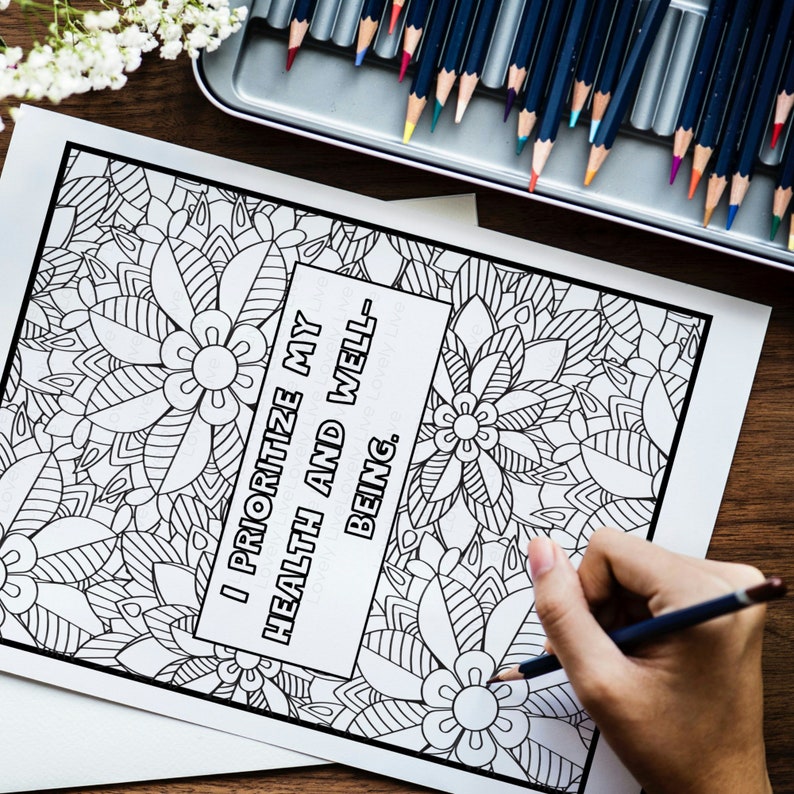 I PRIORITIZE MY
HEALTH AND WELL-
BEING.
Lovely Live Lovely Live
Lovely Live Lovely Live